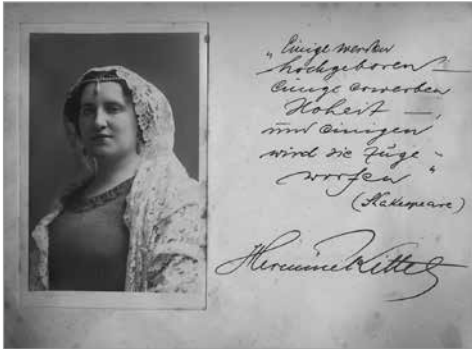 „Einige werden
hochgeboren —
einige erwerben
Hoheit —,
und einigen
wird sie zuge-
worfen“
(Shakespeare)
Hermine Kittel